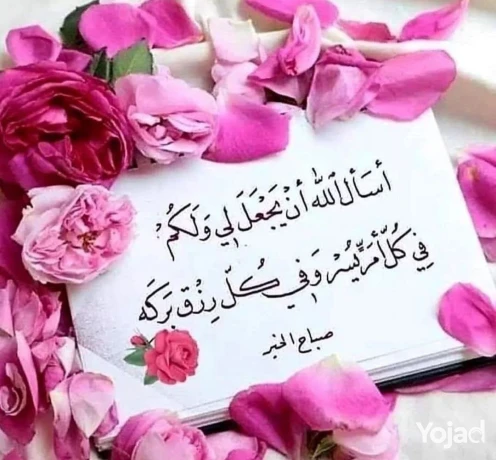 أسأل ٱللّٰه أنْ يَجْعَلَ لِي وَلَكُمْ
فِي كُلّ أمْرٍ يُسْر وَفِي كُلّ رِزْقٍ بَرَكَه
صباح الخير
Yojad